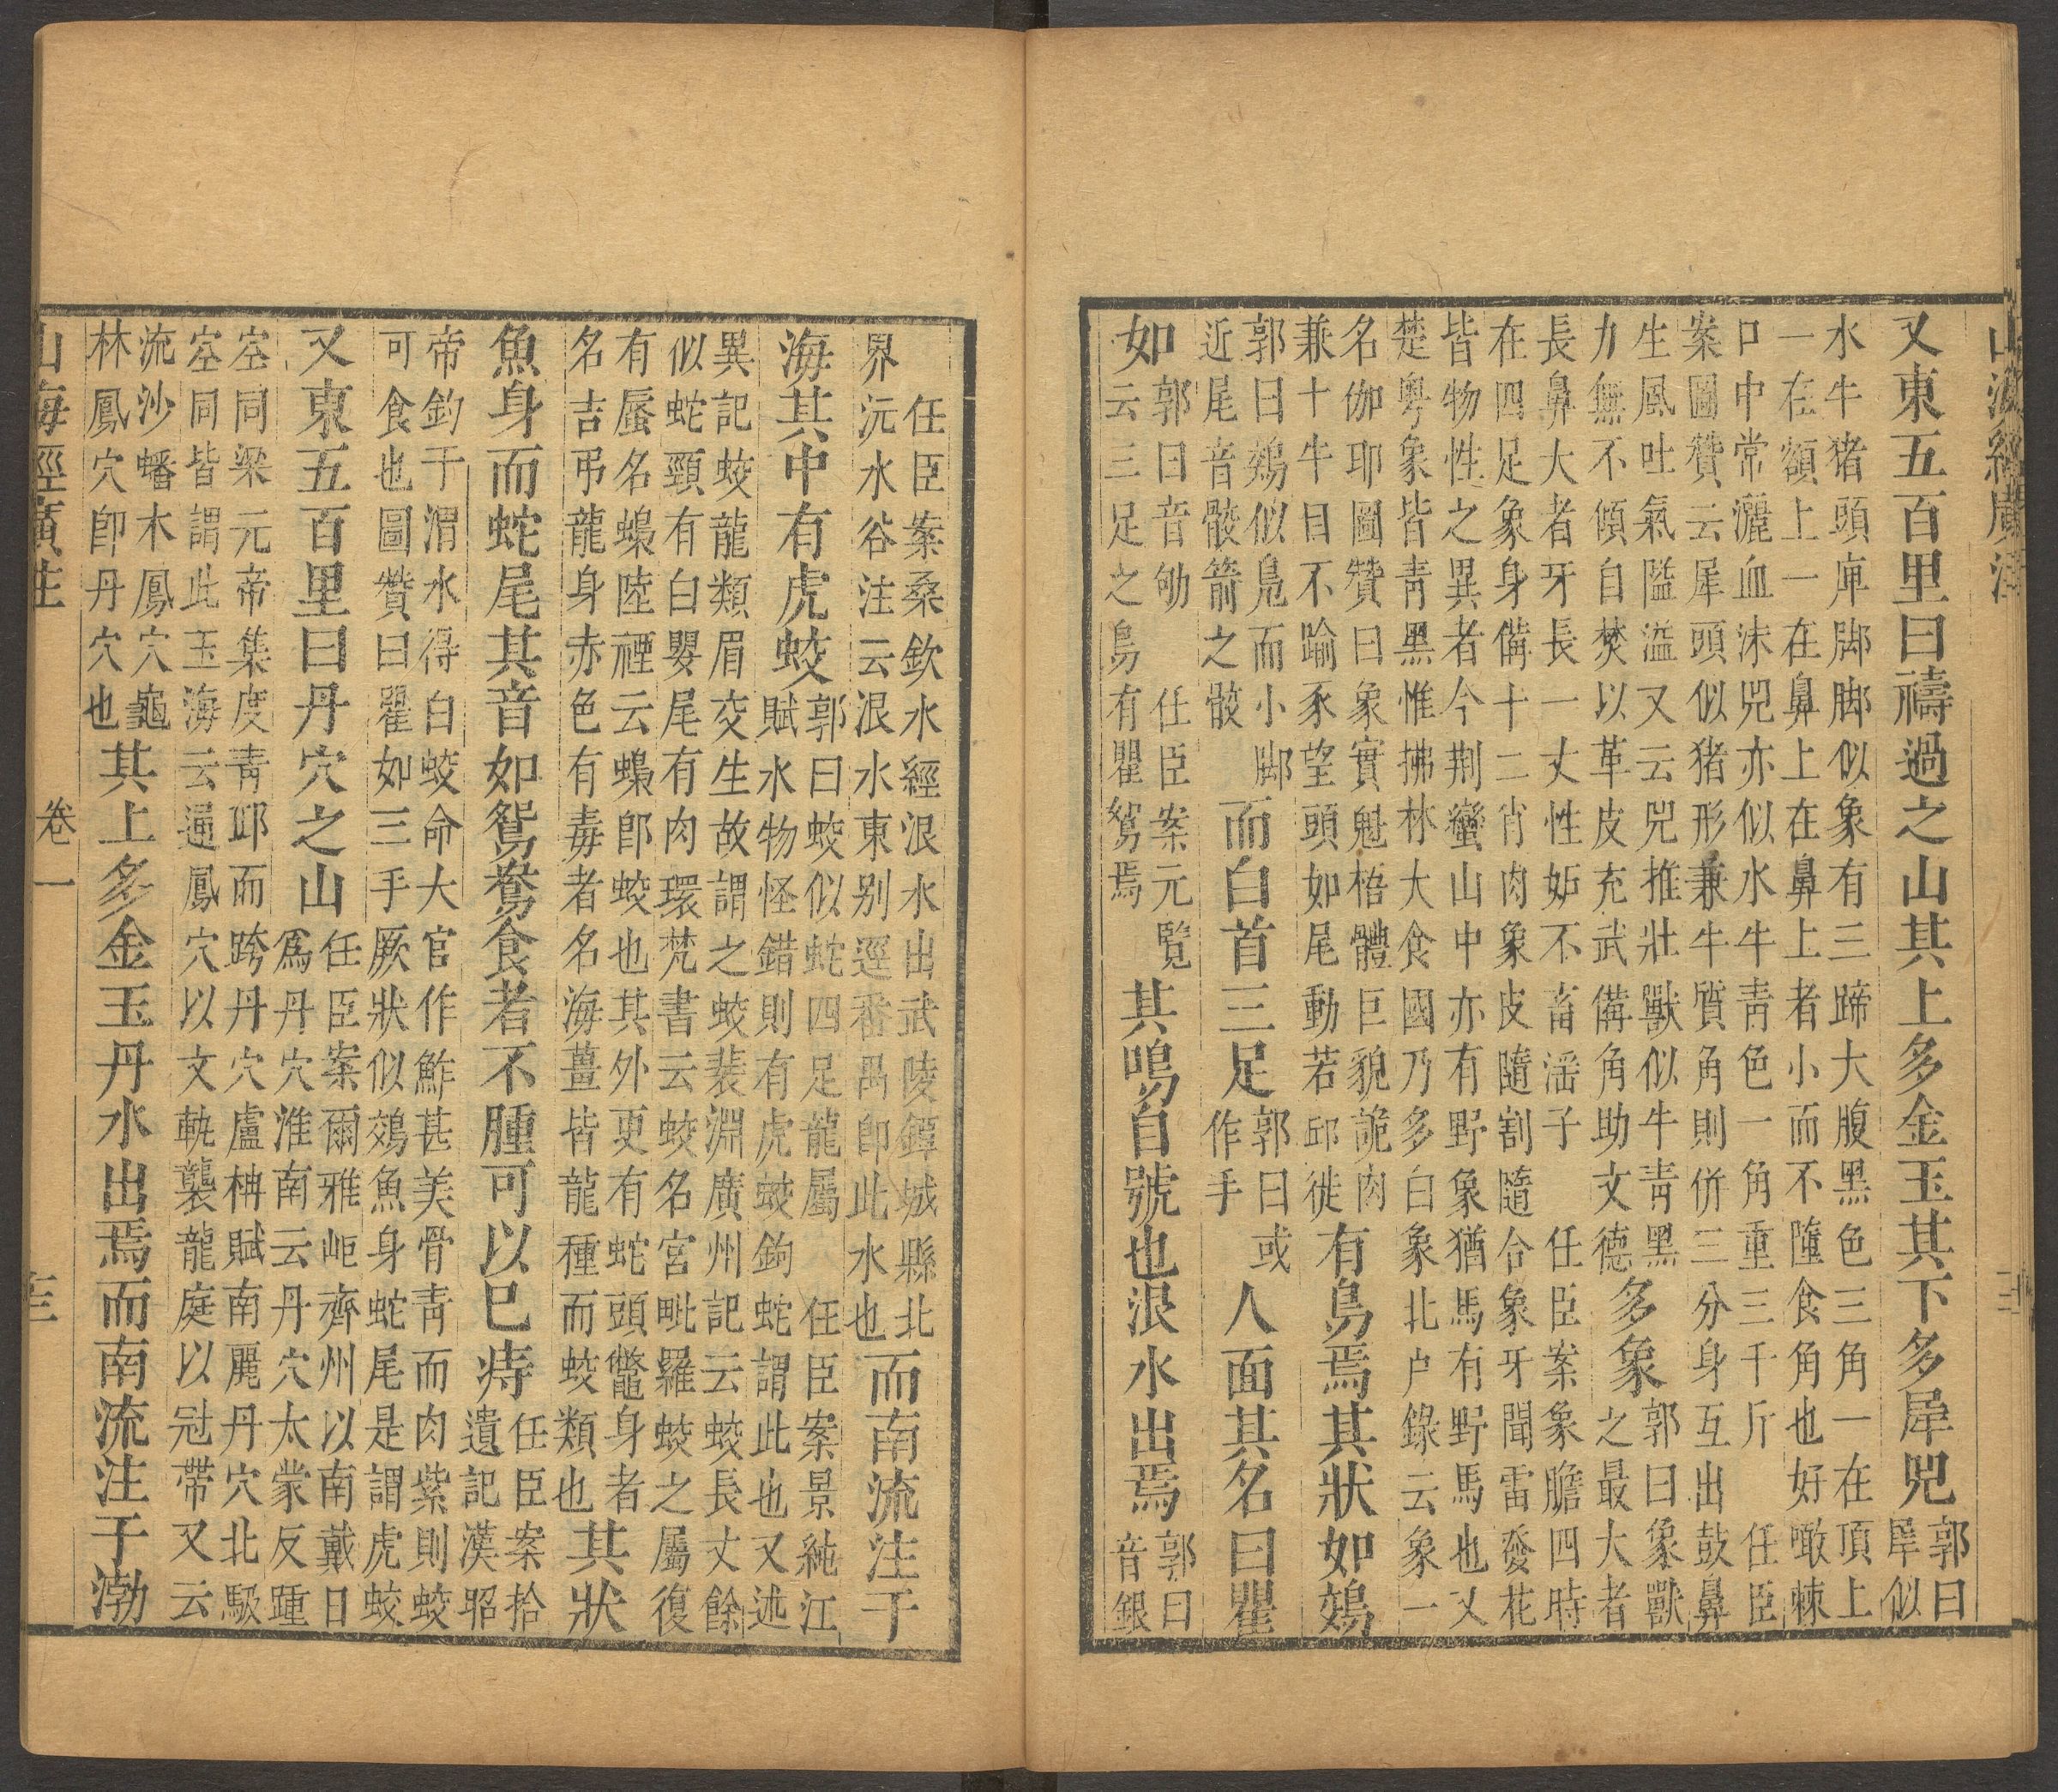 山海經廣注
又東五百里曰禱過之山其上多金玉其下多犀兕郭曰犀似
水牛猪頭庳脚脚似象有三蹄大腹黑色三角一在頂上
一在額上一在鼻上在鼻上者小而不隨食角也好噉棘
口中常灑血沫兕亦似水牛青色一角重三千斤 任臣
案圖贊云犀頭似猪形兼牛質角則併三分身互出鼓鼻
生風吐氣隘溢又云兕推壯獸似牛青黑
力無不傾自焚以革皮充武備角助文德多象郭曰象獸
之最大者
長鼻大者牙長一丈性妬不畜滛子 任臣案象膽四時
在四足象身備十二肖肉象皮隨割隨合象牙聞雷發花
皆物性之異者今荆蠻山中亦有野象猶馬有野馬也又
楚粤象皆青黑惟拂林大食國乃多白象北户錄云象一
名伽耶圖贊曰象實魁梧體巨貌詭肉
兼十牛目不踰豕望頭如尾動若邱徙有鳥焉其狀如鵁
郭曰鵁似鳬而小脚
近尾音骹箭之骹而白首三足郭曰或
作手人面其名曰瞿
如郭曰音劬 任臣案元覽
云三足之鳥有瞿䳜焉其鳴自號也泿水出焉郭曰
音銀
任臣案桑欽水經泿水出武陵鐔城縣北
界沅水谷注云泿水東别逕番禺卽此水也而南流注于
海其中有虎蛟郭曰蛟似蛇四足龍屬 任臣案景純江
賦水物怪錯則有虎蛟鉤蛇謂此也又述
異記蛟龍類眉交生故謂之蛟裴淵廣州記云蛟長丈餘
似蛇頸有白嬰尾有肉環梵書云蛟名宫毗羅蛟之屬復
有蜃名蟂陸禋云蟂卽蛟也其外更有蛇頭鼈身者
名吉弔龍身赤色有毒者名海薑皆龍種而蛟類也其狀
魚身而蛇尾其音如鴛鴦食者不腫可以已痔任臣案拾
遺記漢昭
帝釣于渭水得白蛟命大官作鮓甚美骨青而肉紫則蛟
可食也圖贊曰瞿如三手厥狀似鵁魚身蛇尾是謂虎蛟
又東五百里曰丹穴之山任臣案爾雅岠齊州以南戴日
爲丹穴淮南云丹穴太蒙反踵
空同梁元帝集度青邱而跨丹穴盧柟賦南麗丹穴北騣
空同皆謂此玉海云逼鳳穴以文軌襲龍庭以冠帶又云
流沙蟠木鳳穴龜
林鳳穴卽丹穴也其上多金玉丹水出焉而南流注于渤
山海經廣注 卷一